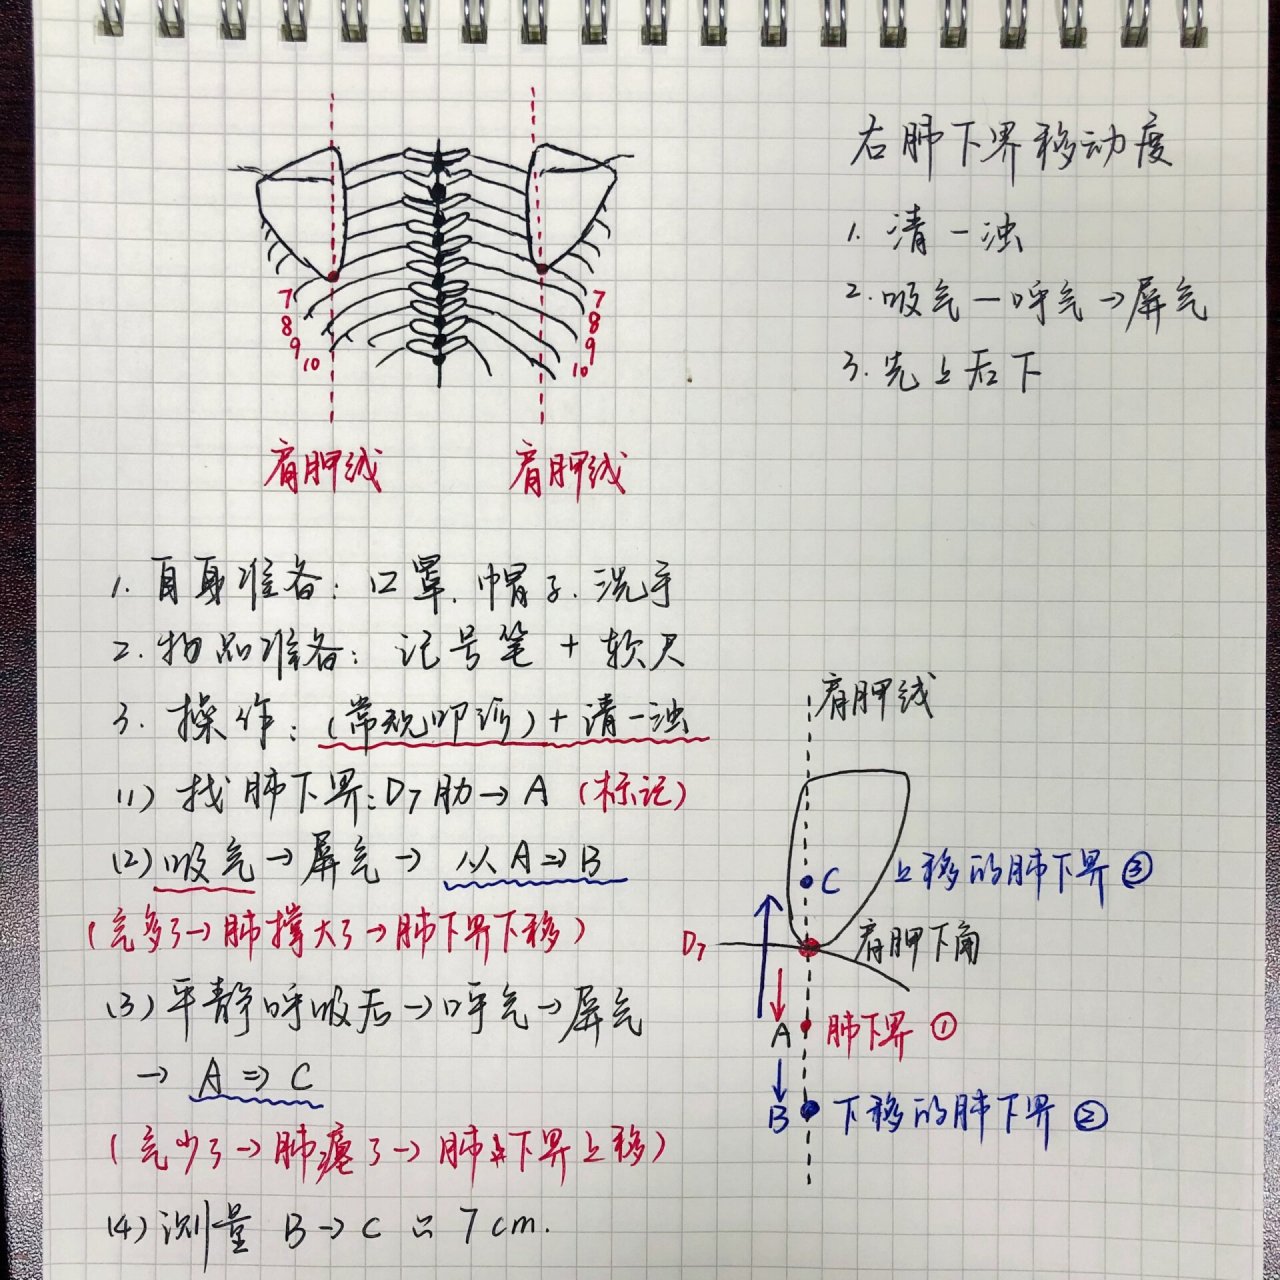 右肺下界移动度
1. 清-浊
2. 吸气-呼气→屏气
3. 先上后下
7
8
9
10
7
8
9
10
肩胛线
肩胛线
1. 自身准备：口罩、帽子、洗手
2. 物品准备：记号笔 + 软尺
3. 操作：(常规叩诊)+清-浊
(1) 找肺下界：D7肋→A (标记)
(2) 吸气→屏气→从A⇒B
(气多了→肺撑大了→肺下界下移)
(3) 平静呼吸后→呼气→屏气
→ A⇒C
(气少了→肺瘪了→肺下界上移)
(4) 测量 B→C 7cm.
肩胛线
C 上移的肺下界 ③
D7
肩胛下角
A 肺下界 ①
B 下移的肺下界 ②